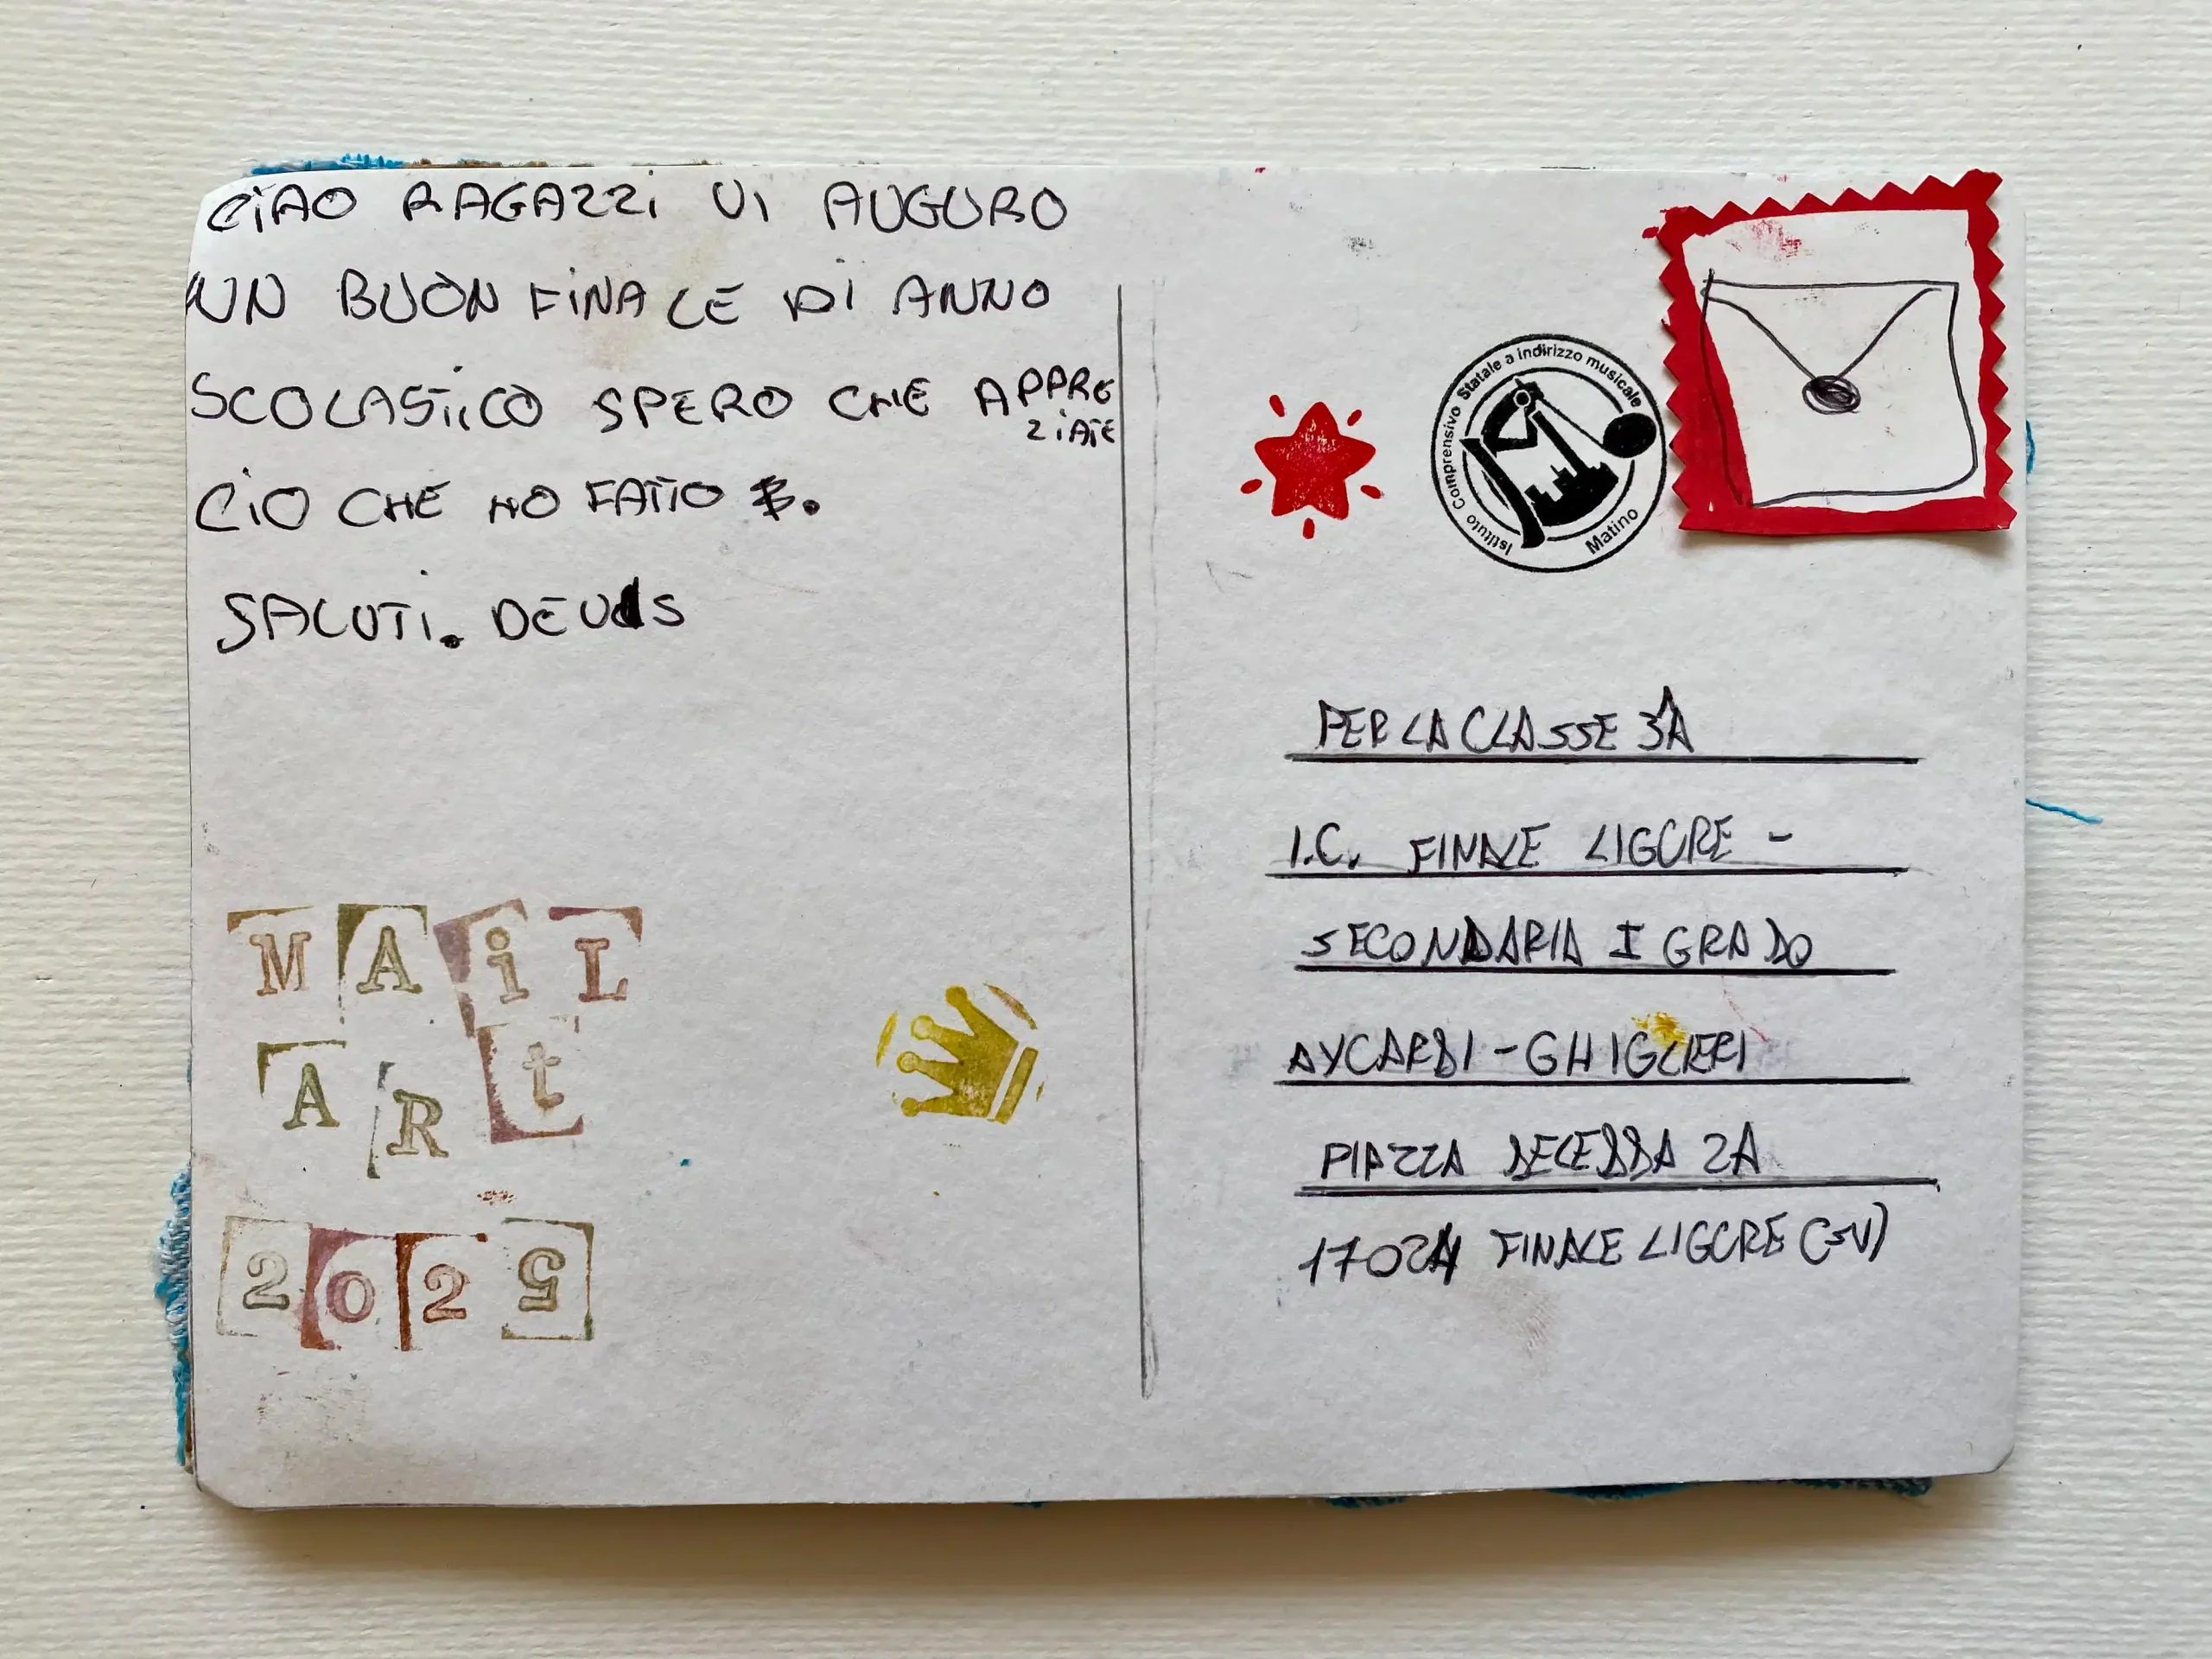 CIAO RAGAZZI VI AUGURO
UN BUON FINALE DI ANNO
SCOLASTICO SPERO CHE APPRE
ZIATE
CIO CHE HO FATTO
SALUTI. DEVIS
MAiL
ARt
2025
Istituto Comprensivo Statale a indirizzo musicale
Matino
PER LA CLASSE 3A
I.C. FINALE LIGURE -
SECONDARIA I GRADO
AYCARDI - GHIGLIERI
PIAZZA 2A
17024 FINALE LIGURE (SV)